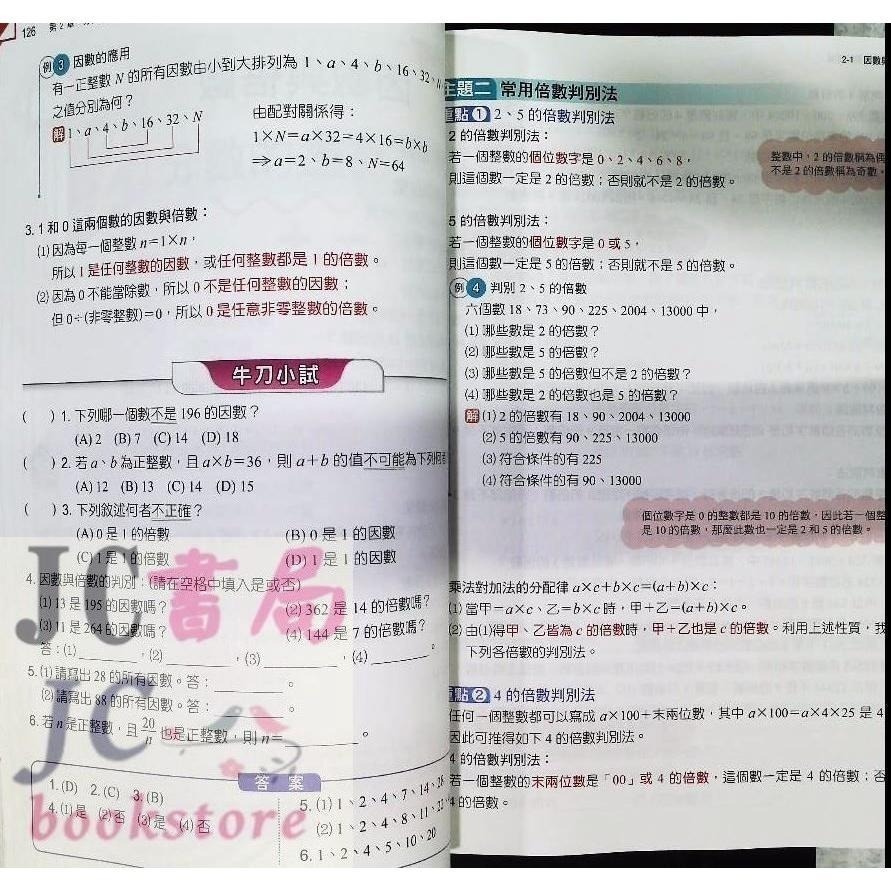 126 第2章
例3 因數的應用
有一正整數 N 的所有因數由小到大排列為 1、a、4、b、16、32、N
之值分別為何？
解 1、a、4、b、16、32、N
由配對關係得：
1×N=a×32=4×16=b×b
⇒a=2、b=8、N=64
3. 1 和 0 這兩個數的因數與倍數：
(1) 因為每一個整數 n=1×n，
所以 1 是任何整數的因數，或任何整數都是 1 的倍數。
(2) 因為 0 不能當除數，所以 0 不是任何整數的因數；
但 0÷(非零整數)=0，所以 0 是任意非零整數的倍數。
牛刀小試
(　) 1. 下列哪一個數不是 196 的因數？
(A) 2 (B) 7 (C) 14 (D) 18
(　) 2. 若 a、b 為正整數，且 a×b=36，則 a+b 的值不可能為下列何
(A) 12 (B) 13 (C) 14 (D) 15
(　) 3. 下列敘述何者不正確？
(A) 0 是 1 的倍數 (B) 0 是 1 的因數
(C) 1 是 1 的倍數 (D) 1 是 1 的因數
4. 因數與倍數的判別：(請在空格中填入是或否)
(1) 13 是 195 的因數嗎？ (2) 362 是 14 的倍數嗎？
(3) 11 是 264 的因數嗎？ (4) 144 是 7 的倍數嗎？
答：(1)______，(2)______，(3)______，(4)______。
5. (1) 請寫出 28 的所有因數。答：______。
(2) 請寫出 88 的所有因數。答：______。
6. 若 n 是正整數，且 20/n 也是正整數，則 n=______。
答案
1. (D) 2. (C) 3. (B)
4. (1) 是 (2) 否 (3) 是 (4) 否
5. (1) 1、2、4、7、14、28
(2) 1、2、4、8、11、22
6. 1、2、4、5、10、20
JC書局
JC
bookstore
2-1 因數
主題二 常用倍數判別法
重點1 2、5 的倍數判別法
2 的倍數判別法：
若一個整數的個位數字是 0、2、4、6、8，
則這個數一定是 2 的倍數；否則就不是 2 的倍數。
整數中，2 的倍數稱為偶
不是 2 的倍數稱為奇數。
5 的倍數判別法：
若一個整數的個位數字是 0 或 5，
則這個數一定是 5 的倍數；否則就不是 5 的倍數。
例4 判別 2、5 的倍數
六個數 18、73、90、225、2004、13000 中，
(1) 哪些數是 2 的倍數？
(2) 哪些數是 5 的倍數？
(3) 哪些數是 5 的倍數但不是 2 的倍數？
(4) 哪些數是 2 的倍數也是 5 的倍數？
解 (1) 2 的倍數有 18、90、2004、13000
(2) 5 的倍數有 90、225、13000
(3) 符合條件的有 225
(4) 符合條件的有 90、13000
個位數字是 0 的整數都是 10 的倍數，因此若一個整
是 10 的倍數，那麼此數也一定是 2 和 5 的倍數。
乘法對加法的分配律 a×c+b×c=(a+b)×c：
(1) 當甲=a×c、乙=b×c 時，甲+乙=(a+b)×c。
(2) 由(1)得甲、乙皆為 c 的倍數時，甲+乙也是 c 的倍數。利用上述性質，我
下列各倍數的判別法。
重點2 4 的倍數判別法
任何一個整數都可以寫成 a×100+末兩位數，其中 a×100=a×4×25 是 4
因此可推得如下 4 的倍數判別法。
4 的倍數判別法：
若一個整數的末兩位數是「00」或 4 的倍數，這個數一定是 4 的倍數；否
4 的倍數。